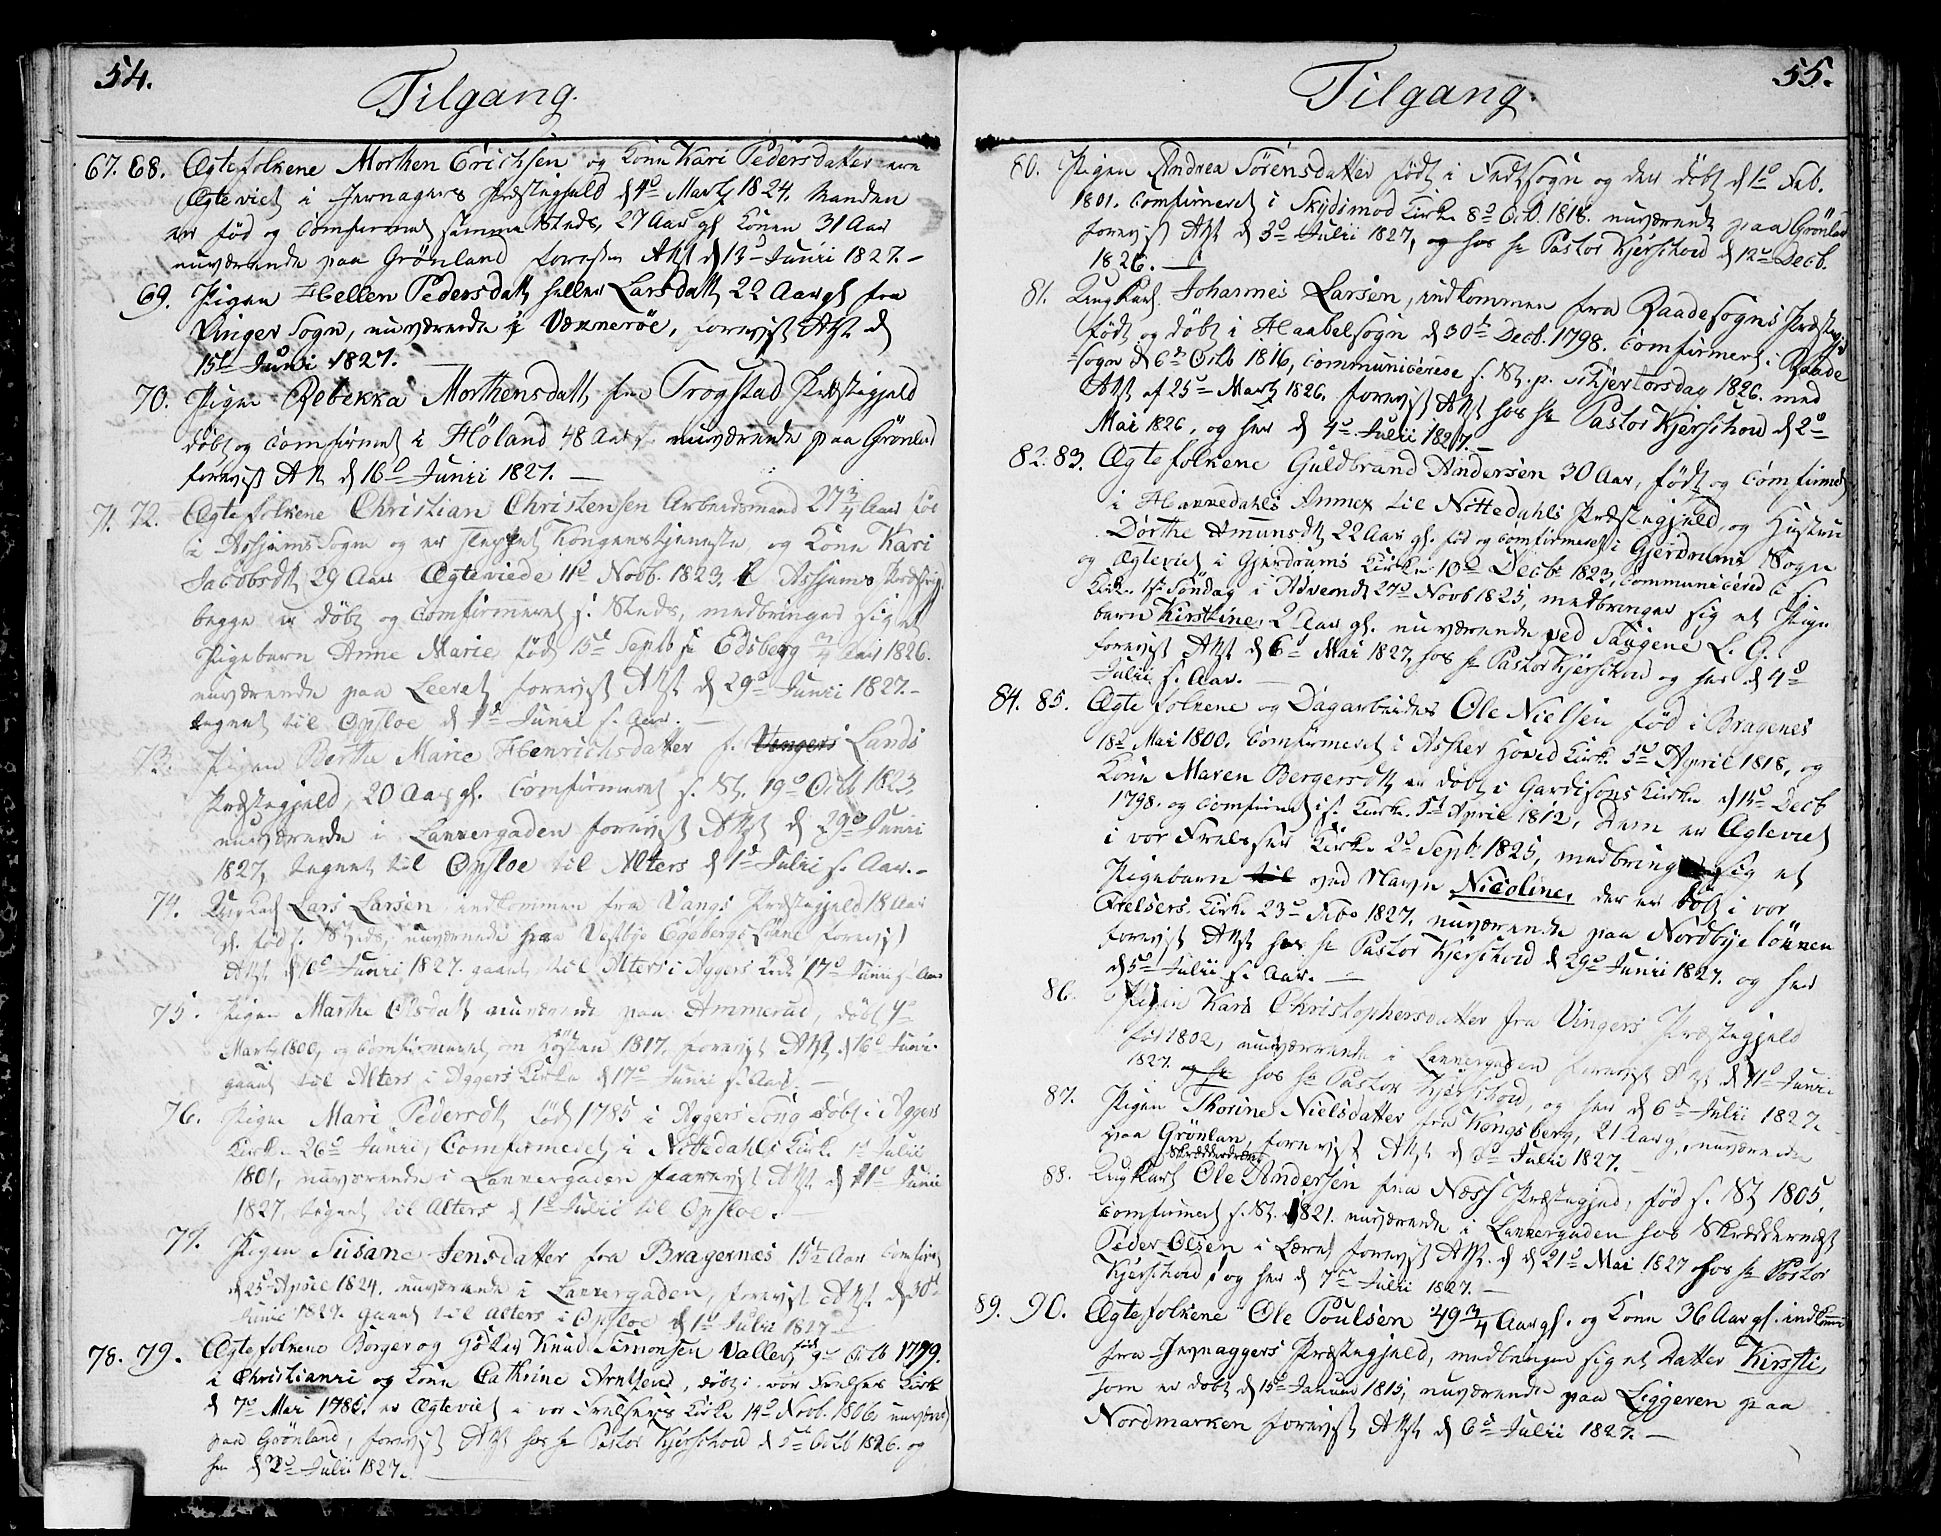 54.
Tilgang.
67. 68. Ægtefolkene Morthen Erichsen og Kone Kari Pedersdatter ere
Ægteviet i Jevnagers Præstegjeld d 4d Martz 1824. Manden
er fød og Comfirmert samme Steds, 27 Aar gl Konen 31 Aar
nuværende paa Grönland foreviist Att d 13d Junii 1827. –
69. Pigen Hellen Pedersdatt heller Larsdatt 22 Aar gl fra
Vinger Sogn, nuværende i Vennerøe, foreviist Att d
15d Junii 1827.
70. Pigen Rebekka Morthensdatt, fra Trogstad Præstegjeld
døbt og Comfirmert i Höland 48 Aar nuværende paa Grönland
foreviist Att d 16d Junii 1827. –
71. 72. Ægtefolkene Christian Christensen Arbeidsmand 27 3/4 Aar fød
i Aschims Sogn og er Kongens tjeneste, og Kone Kari
Jacobsdtt 29 Aar Ægteviede 11d Novb. 1823. Aschims
begge er døbt og Comfirmeret s. Steds, medbringer sig et
Pigebarn Anne Marie fød 15d Septb Edsberg 3/4 Aar 1826.
nuværende paa Leeret foreviist Att d 29d Junii 1827. –
tegnet til Opsloe d 1d Junii s. Aar. –
73. Pigen Berthe Marie Henrichsdatter f. Vingers Lands
Præstegjeld, 20 Aar gl. Comfirmeret s. St. 19d Octb 1823.
nuværende i Lakkergaden foreviist Att d 29d Junii
1827, tegnet til Opsloe til Alters d 1d Julii s. Aar. –
74. Ungkarl Lars Larsen indkommen fra Vangs Præstegjeld 18 Aar
gl. fød s. Steds, nuværende paa Vestbye Egebergs Lönne foreviist
Att d Junii 1827. gaaet til Alters i Aggers Kirke 17d Junii s. Aar
75. Pigen Marthe Olsdatt nuværende paa Ammerud, født
Martz 1800, og Comfirmeret om Høsten 1817. foreviist Att d 16d Junii.
gaaet til Alters i Aggers Kirke d 17d Junii s. Aar. –
76. Pigen Mari Pedersdtt fød 1785 i Aggers Sogn døbt i Aggers
Kirke 26d Junii, Comfirmeret i Nittedahls Kirke 1d Julii
1801, nuværende i Lakkergaden foreviist Att d 11d Junii
1827, tegnet til Alters d 1d Julii til Opsloe. –
77. Pigen Susane Jensdatter fra Bragernæs 15 1/2 Aar Comfirt
d 25d April 1824. nuværende i Lakkergaden, foreviist Att d 30d
Junii 1827. gaaet til Alters i Opsloe d 1d Julii 1827. –
78. 79. Ægtefolkene Borger og Höker Knud Simonsen Valler, fød Octb 1779.
i Christiania og Kone Cathrine Arntsed, døbt i vor Frelsers Kirke
d 7d Mai 1786. er Ægteviet i vor Frelsers Kirke 14d Novb. 1806 nuværende
paa Grönland, foreviist Att hos Hr Pastor Kjerschow d 5d Octb 1826. og
her d 2d Julii 1827. –
55.
Tilgang.
80. Pigen Andrea Sörensdatter født i Fedt Sogn og der døbt d 1d Feb.
1801. Comfirmeret i Skydsmod Kirke 8d Octb. 1818. nuværende paa Grönland
foreviist Att d 3d Julii 1827, og hos Hr Pastor Kjerschow d 12d Decb.
1826. –
81. Ungkarl Johannes Larsen, indkommen fra Raade Sogns Præstegjeld
født og døbt i Haabel Sogn d 30d Decb. 1798. Comfirmert i Raade
Sogn d 6d Octb 1816, Communicerede s. St. p. Skjertorsdag 1826. med
Att af 25d Martz 1826. foreviist Att hos Hr Pastor Kjerschow d 2d
Mai 1826, og her d 4d Julii 1827. –
82. 83. Ægtefolkene Guldbrand Andersen 30 Aar, født og Comfirmet
i Hakkedahls Annex til Nittedahls Præstegjeld, og Hustru
Dorthe Amunsdtt 22 Aar gl. fød og Comfirmeret i Gjerdrums Sogn
og Ægteviet i Gjerdrums Kirke 10d Decbr 1823, Communicered i s.
Kirke 1st Söndag i Advend 27d Novb 1825, medbringer sig et Pige
barn Kirstine, 2 Aar gl. nuværende ved Saugene L. G.
foreviist Att d 6d Mai 1827, hos Hr Pastor Kjerschow og her d 4d
Julii s. Aar. –
84. 85. Ægtefolkene og Dagarbeider Ole Nielsen fød i Bragenes
18d Mai 1800. Comfirmeret i Asker Hoved Kirke 5d April 1818, og
Kone Maren Bergersdtt er døbt i Gardisons Kirke d 15d Decb
1798. og Comfirmet i s. Kirke 5d April 1812, Dem er Ægteviet
i vor Frelsser Kirke 2d Septb 1825, medbringer sig et
Pigebarn til ved Navn Nicoline, der er døbt i vor
Frelsers Kirke 23d Febr 1827. nuværende paa Nordbye lönnen
foreviist Att hos Hr Pastor Kjerschow d 29d Junii 1827. og her
d 5d Julii s. Aar. –
86. Pigen Kari Christophersdatter fra Vingers Præstegjeld
fød 1802, nuværende i Lakkergaden foreviist Att d 11d Junii
1827. og hr hos Hr Pastor Kjerschow, og her d 6d Julii 1827. –
87. Pigen Thorine Nielsdatter fra Kongsberg, 21 Aar gl, nuværende
paa Grönlan, foreviist Att d 6d Julii 1827. –
88. Ungkarl Skrædderdreng Ole Andersen fra Næss Præstegjed, fød s. St 1805,
Comfirmert s. St. 1821. nuværende i Lakkergaden hos Skræddermest
Peder Olsen i Læred foreviist Att. d 21d Mai 1827 hos Hr Pastor
Kjerschow, og her d 7d Julii 1827. –
89. 90. Ægtefolkene Ole Poulsen 49 3/4 Aar gl. og Kone 36 Aar gl. indkomne
fra Jevnaggers Præstegjeld, medbringer sig et Datter Kirsti,
som er døbt d 15d Januar 1815, nuværende paa Liggeren paa
Nordmarken foreviist Att d 6d Julii 1827. –